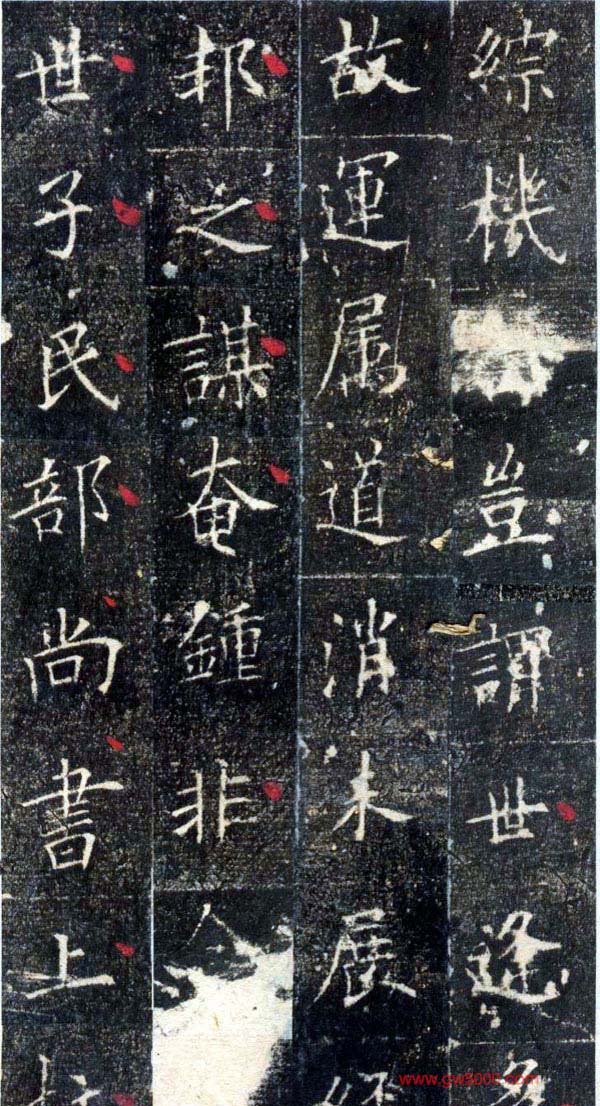 綜機豈謂世逢
故運属道消未展經
邦之謀奄鍾非
世子民部尚書上
www.gw3000.com